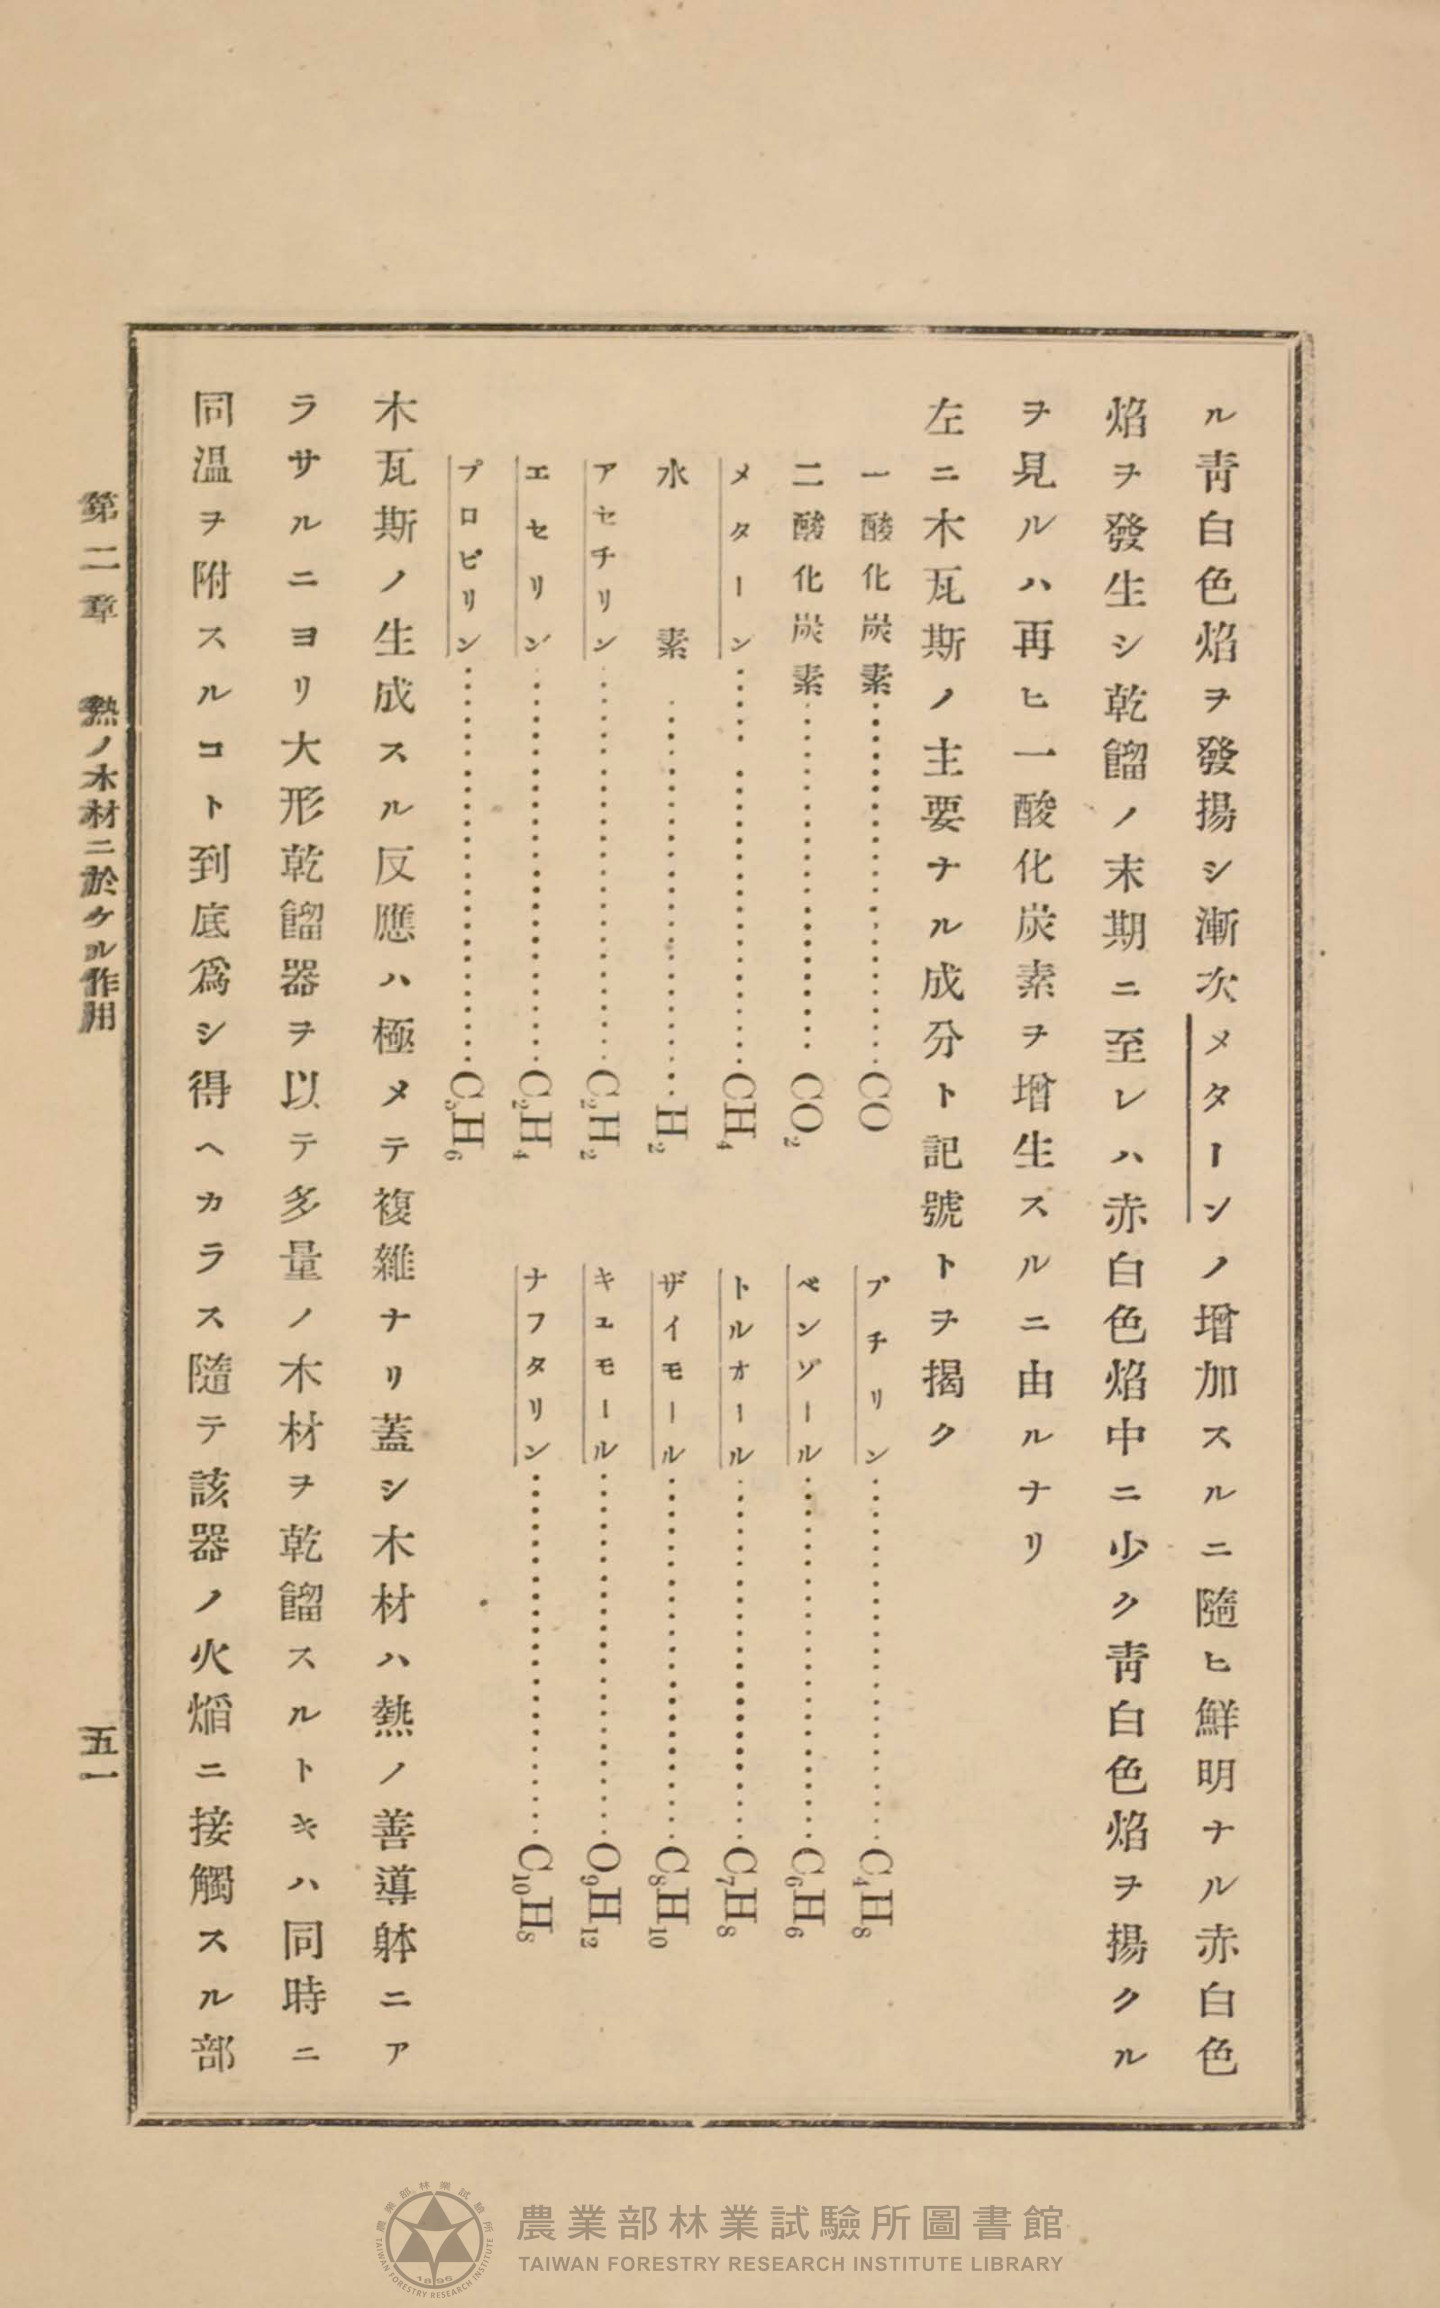 ル靑白色焰ヲ發揚シ漸次メターンノ增加スルニ隨ヒ鮮明ナル赤白色
焰ヲ發生シ乾餾ノ末期ニ至レハ赤白色焰中ニ少ク靑白色焰ヲ揚クル
ヲ見ルハ再ヒ一酸化炭素ヲ增生スルニ由ルナリ
左ニ木瓦斯ノ主要ナル成分ト記號トヲ揭ク
一酸化炭素……………CO
二酸化炭素……………CO₂
メターン……………CH₄
水素……………H₂
アセチリン……………C₂H₂
エセリン……………C₂H₄
プロピリン……………C₃H₆
ブチリン……………C₄H₈
ベンゾール……………C₆H₆
トルオール……………C₇H₈
ザイモール……………C₈H₁₀
キユモール……………C₉H₁₂
ナフタリン……………C₁₀H₈
木瓦斯ノ生成スル反應ハ極メテ複雜ナリ蓋シ木材ハ熱ノ善導躰ニア
ラサルニヨリ大形乾餾器ヲ以テ多量ノ木材ヲ乾餾スルトキハ同時ニ
同溫ヲ附スルコト到底爲シ得ヘカラス隨テ該器ノ火焰ニ接觸スル部
第二章 熱ノ木材ニ於ケル作用
五一
農業部林業試驗所圖書館
TAIWAN FORESTRY RESEARCH INSTITUTE LIBRARY
農業部林業試驗所
TAIWAN FORESTRY RESEARCH INSTITUTE
1896